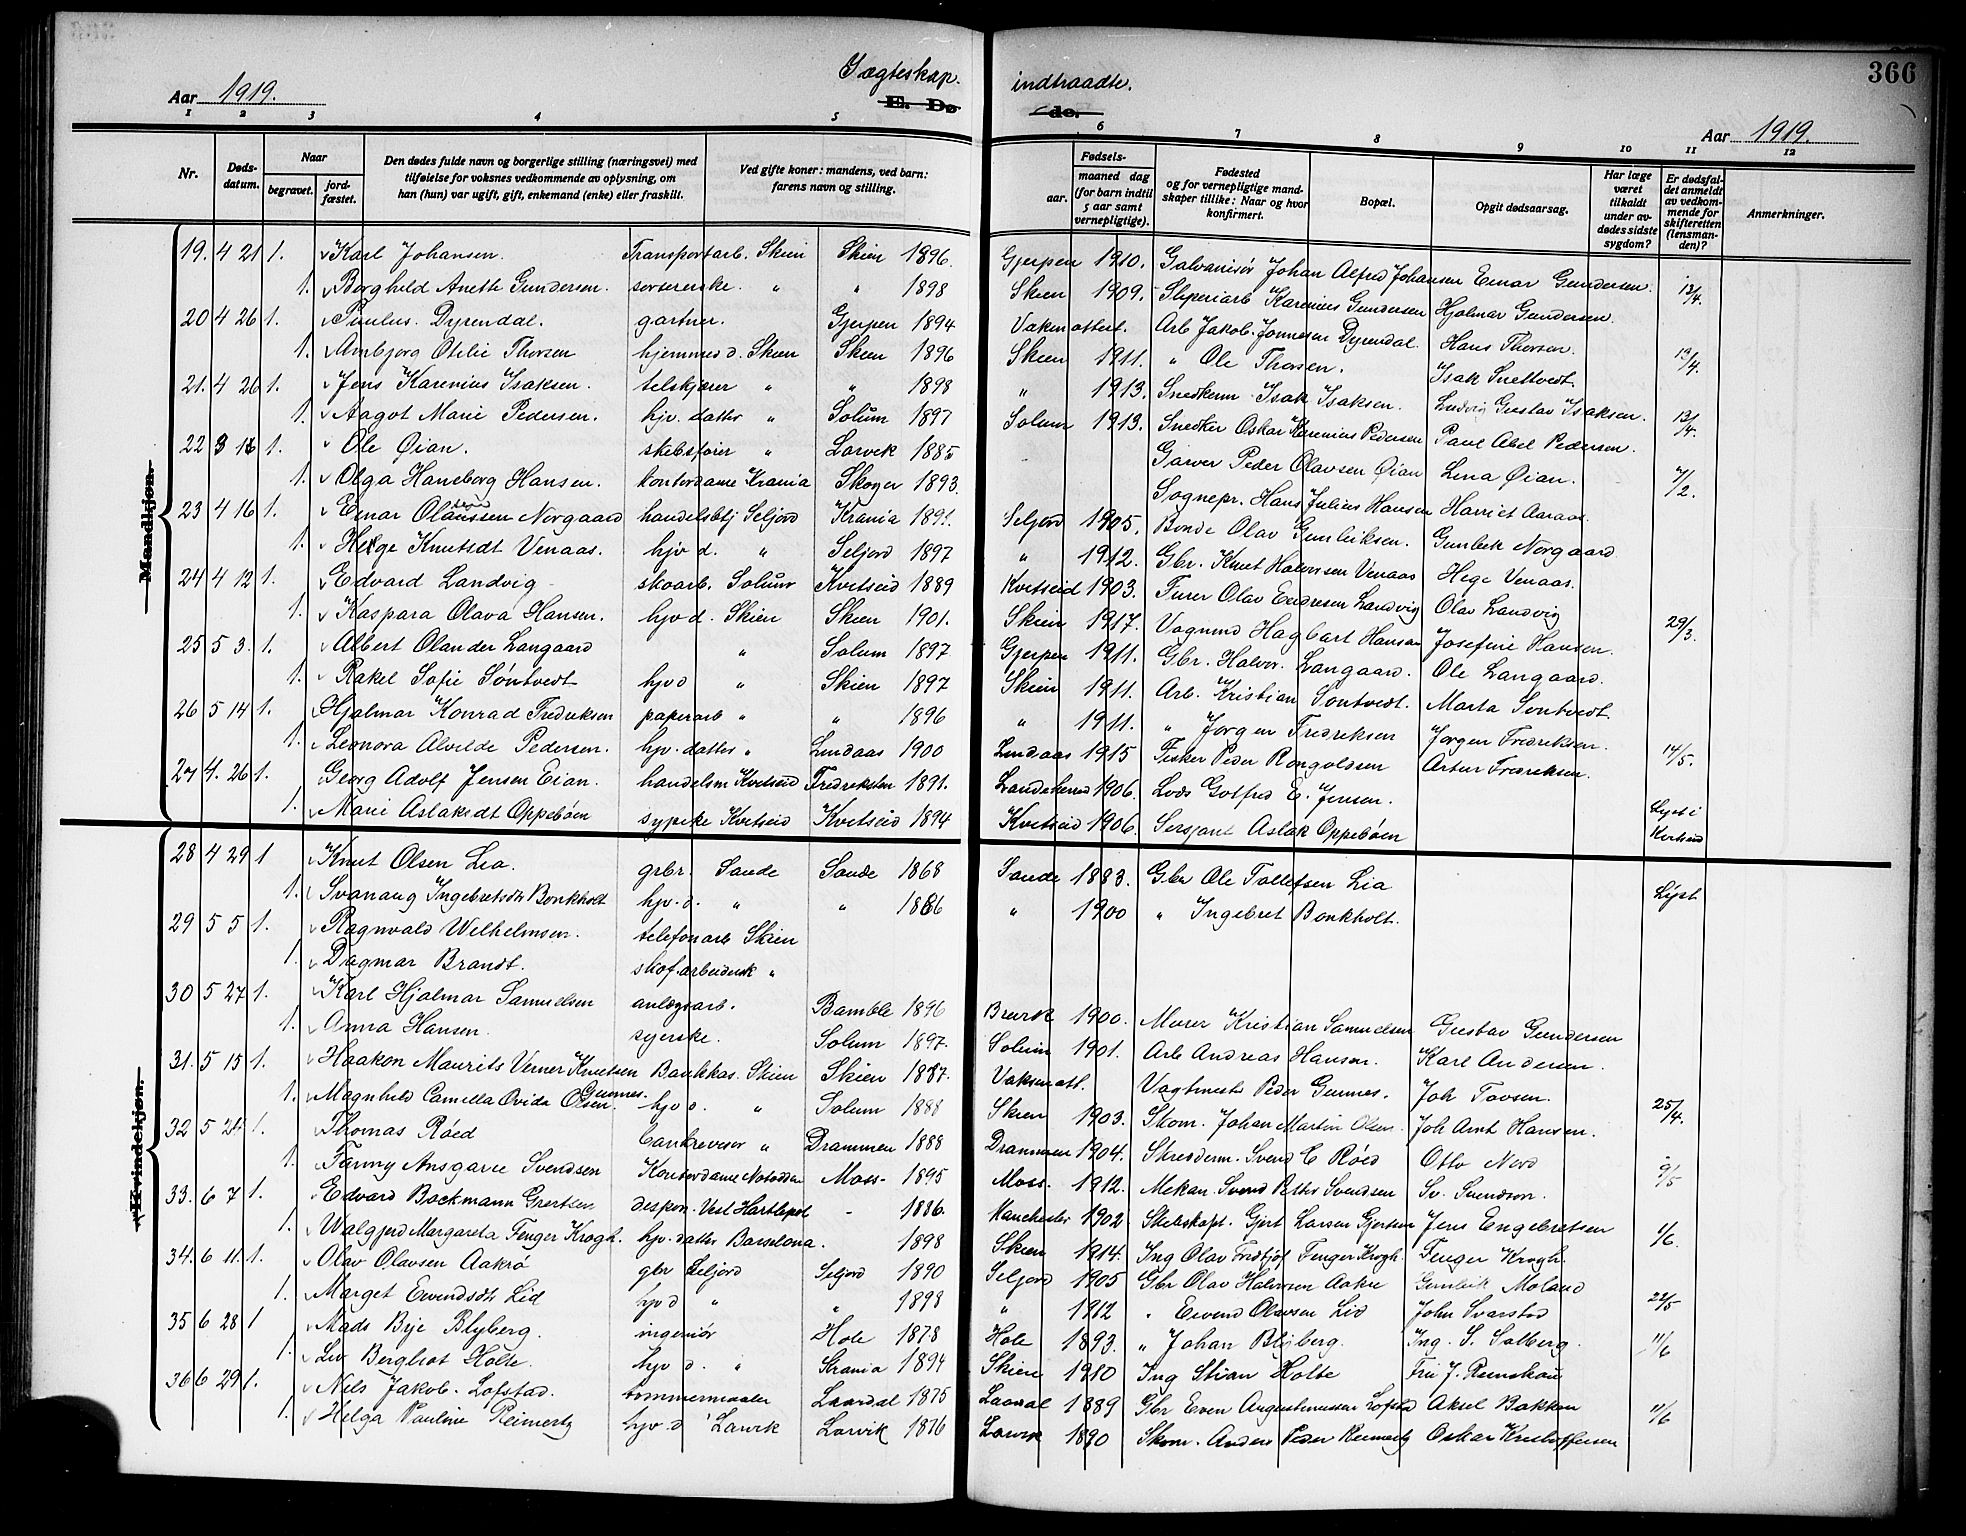 366
I ægteskap indtraadte.
Aar 1919.
E. Dø de.
Aar 1919.
1 2 3 4 5 6 7 8 9 10 11 12
Nr.
Døds-datum.
Naar
begravet.
jord-fæstet.
Den dødes fulde navn og borgerlige stilling (næringsvei) med
tilføielse for voksnes vedkommende av oplysning, om
han (hun) var ugift, gift, enkemand (enke) eller fraskilt.
Ved gifte koner: mandens, ved barn:
farens navn og stilling.
Fødsels-
aar.
maaned dag
(for barn indtil
5 aar samt
vernepligtige).
Fødested
og for vernepligtige mand-
skaper tillike: Naar og hvor
konfirmert.
Bopæl.
Opgit dødsaarsag.
Har læge
været
tilkaldt
under av-
dødes sidste
sygdom?
Er dødsfal-
det anmeldt
av vedkom-
mende for
skifteretten
(lensman-
den)?
Anmerkninger.
Mandkjøn.
19. 4 21 1. Karl Johansen. Transportarb. Skien Skien 1896. Gjerpen 1910. Galvanisør Johan Alfred Johansen Einar Gundersen. 13/4.
1. Borghild Anette Gundersen. " " 1898 Skien 1909. Sliperiarb Karenius Gundersen Hjalmar Gundersen.
20 4 26 1. Paulus Dyrendal. gartner. Gjerpen 1894 Arb Jakob Dyrendal. Hans Thorsen. 13/4.
1. Ambjørg Otilie Thorsen hjemmev d. Skien Skien 1896 Skien 1911. " Ole Thorsen.
21. 4 26 1. Jens Karenius Isaksen. " " 1898 " 1913. Isak Isaksen. Ludvig Gustav Isaksen. 13/4.
1. Aagot Marie Pedersen. hjv. datter " Solum 1897 Solum 1913. Snedker Oskar Karenius Pedersen Paul Abel Pedersen.
22 3 1. Ole Øian. skibsfører " Larvik 1885 Garver Peder Olavsen Øian Lina Øian. /2.
1. Olga Haneborg Hansen. kontordame Krania Skoger 1893. Sognepr. Hans Julius Hansen Harriet
23 4 16 1. Einar Norgaard handelsbtj Seljord Krania 1891. Seljord 1905. Bonde Olav Gunleiksen. Gunleik Norgaard
1. Helge Knutsdt Venaas. hjv d. " Seljord 1897 " 1912. Gbr. Knut Halvorsen Venaas Hege Venaas.
24 4 12 1. Edvard Landvig skoarb. Solum Kvitseid 1889 Kvitseid 1903. Olav Landvig Olav Landvig
1. Kaspara Olava Hansen. hjv d. Skien Skien 1901. Skien 1917. Vognmd Hagbart Hansen Josefine Hansen. 29/3.
25 5 3. 1. Albert Olander Langaard " Solum 1897 Gjerpen 1911. Gbr. Halvor Langaard. Ole Langaard.
1. Rakel Sofie Søntvedt hjv d " Skien 1897 Skien 1911. Arb. Kristian Søntvedt. Marta Søntvedt.
26 5 14 1. Hjalmar Konrad Fredriksen papirarb " " 1896 " 1911. " Jørgen Fredriksen Jørgen Fredriksen. 14/5.
1. Leonora Alvilde Pedersen. hjv. datter " Lindaas 1900 Lindaas 1915 Fisker Peder Artur Fredriksen.
27 4. 26 1. Georg Adolf Jensen Eian. handelsm Kvitseid 1891. 1906. Lods Gotfred E. Jensen.
1. Marie Aslaksdt Oppebøen sypike Kvitseid Kvitseid 1894 Kvitseid 1906. Sersjant Aslak Oppebøen Lyst i Kvitseid
Kvindekjøn.
28 4 29 1 Knut Olsen Lia. gbr. Sande Sande 1868 Sande 1883. Gbr Ole Tollefsen Lia Lyst
1. Svanaug Ingebretsdt Bonkholt hjv. d. " " 1886 " 1900 " Ingebret Bonkholt.
29 5 5 1. Ragnvald Wilhelmsen. telefonarb Skien
1. Dagmar Brandt. "
30 5 27 1. Karl Hjalmar Samuelsen anlægsarb. Bamble 1896 Brevik 1900. Murer Kristian Samuelsen Gustav Gundersen
1. Anna Hansen. syerske. Solum 1897. Solum 1901. Arb Andreas Hansen. Karl Andersen.
31. 5 15 1. Haakon Maurits Verner Knutsen Bankkas. Skien Skien 1887. Vagtmester Peder Gunnes. Joh Tovsen. 25/4.
1. Magnhild Camilla Ovida Olsen. hjv d. " Solum 1888 Skien 1903. Skom. Johan Martin Olsen. Joh Arnt Hansen.
32 5 24 1. Thomas Røed bankrevisor " Drammen 1888 Drammen 1904. Skredderm. Svend C Røed Otto Nerd 9/5
1. Fanny Ansgarie Svendsen Kontordame Notodden Moss 1895 Moss. 1912. Mekan. Svend Petter Svendsen Sv. Svendsen.
33. 6 7 1. Edvard Bockmann Gjertsen Vest Hartlepol - 1886. Manchester 1902. Skibskapt. Gjert Larsen Gjertsen Jens Engebretsen 1/6.
1. Walgjerd Margareta Fenger Krogh. hjv. datter Barselona. 1898 Skien 1914. Ing Olav Fridtjof Fenger Krogh. Fenger Krogh.
34. 6 11. 1. Olav Olavsen Aakrø gbr Seljord Seljord 1890 Seljord 1905 Gbr Olav Halvorsen Aakre Gunleik Moland 22/5
1. Marget Eivendsdt Lid hjv d " " 1898 " 1912 " Eivend Olavsen Lid John Svarstad
35 6 28 1 Mads Bye Blyberg. ingeniør Hole 1878 Hole 1893. " Johan Blyberg. Ing. S. Solberg. 11/6
1. Liv Bergliot Holte. hjv d. " Krania 1894 Skien 1910 Ing Stian Holte
36 6 29 1. Nils Jakob Lofstad. tømmermaaler Laardal 1875 Laardal 1889 Gbr Even Lofstad Aksel Bakken 11/6
1. Helga Pauline Reimertz hjv. d Larvik Larvik 1876 Larvik 1890 Skom. Anders Peder Reimertz Oskar Kristoffersen